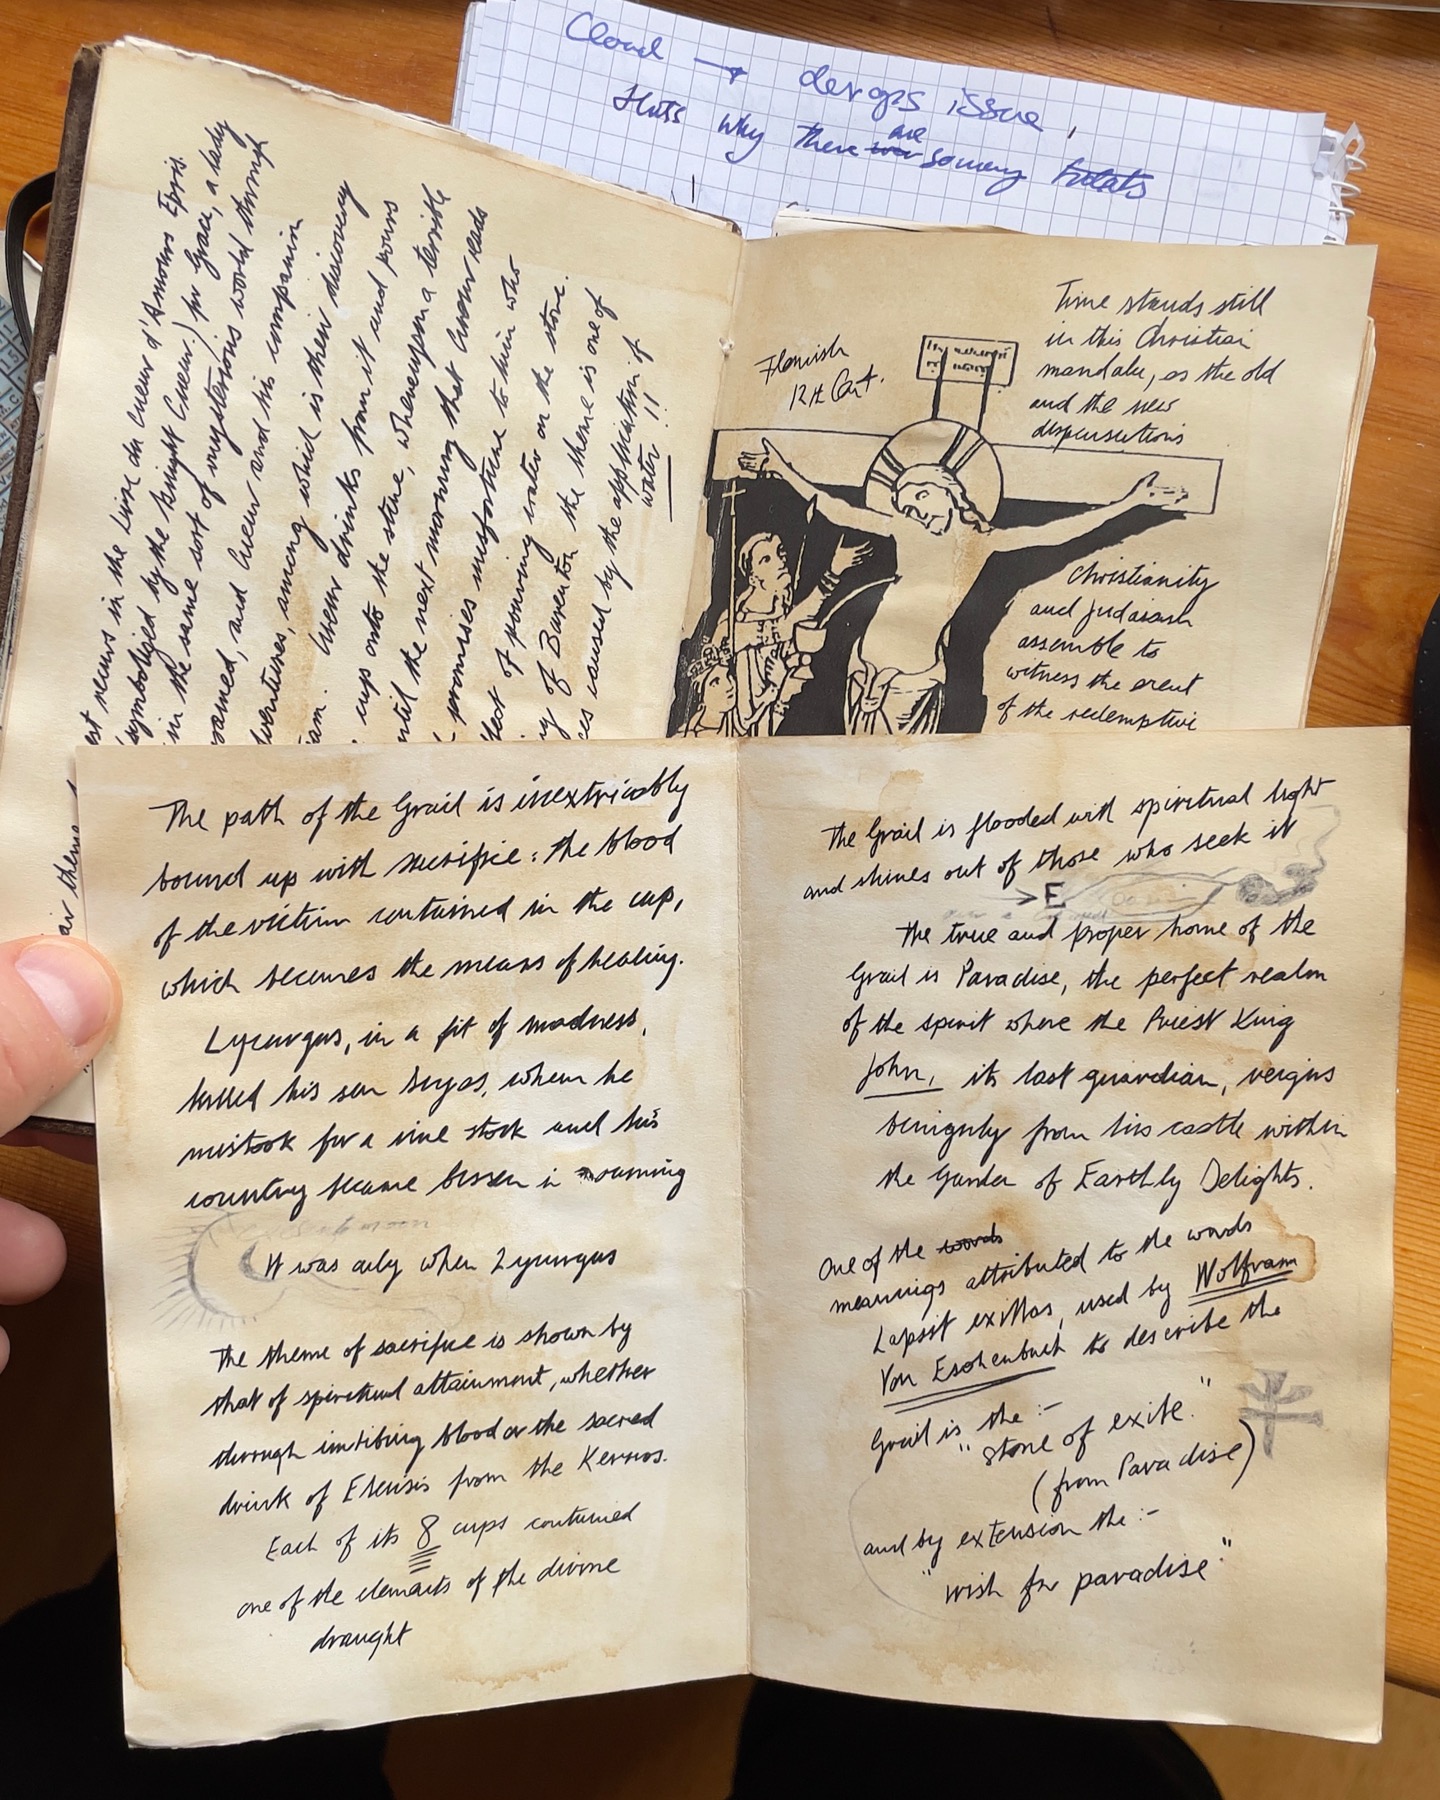 Cloud → devops issue,
thats why there are so many
est recurs in the Livre du Cueur d'Amours Epris.
symbologised by the knight Cueur.) for Grace, a lady
in the same sort of mysterious world through
oamed, and Cueur and his companion
dventures, among which is their discovery
Cueur drinks from it and pours
cups onto the stone, whereupon a terrible
ntil the next morning that Cueur reads
promises misfortune to him who
of pouring water on the stone.
y of Barenton the theme is one of
es caused by the application of
water!!
Flemish
12th Cent.
Time stands still
in this Christian
mandala, as the old
and the new
dispersetions
Christianity
and Judaism
assemble to
witness the event
of the redemptive
The path of the Grail is inextricably
bound up with sacrifice: the blood
of the victim contained in the cup,
which becomes the means of healing.
Lycurgus, in a fit of madness,
killed his son Dryas, whom he
mistook for a vine stock and his
country became
It was only when Lycurgus
The theme of sacrifice is shown by
that of spiritual attainment, whether
through imbibing blood or the sacred
drink of Eleusis from the Kernos.
Each of its 8 cups contained
one of the elements of the divine
draught
The Grail is flooded with spiritual light
and shines out of those who seek it
→ E
The true and proper home of the
Grail is Paradise, the perfect realm
of the spirit where the Priest King
John, its last guardian, reigns
benignly from his castle within
the Garden of Earthly Delights.
One of the words
meanings attributed to the words
Lapsit exillas, used by Wolfram
Von Eschenbach to describe the
Grail is the :-
"stone of exile."
(from Paradise)
and by extension the :-
"wish for paradise"